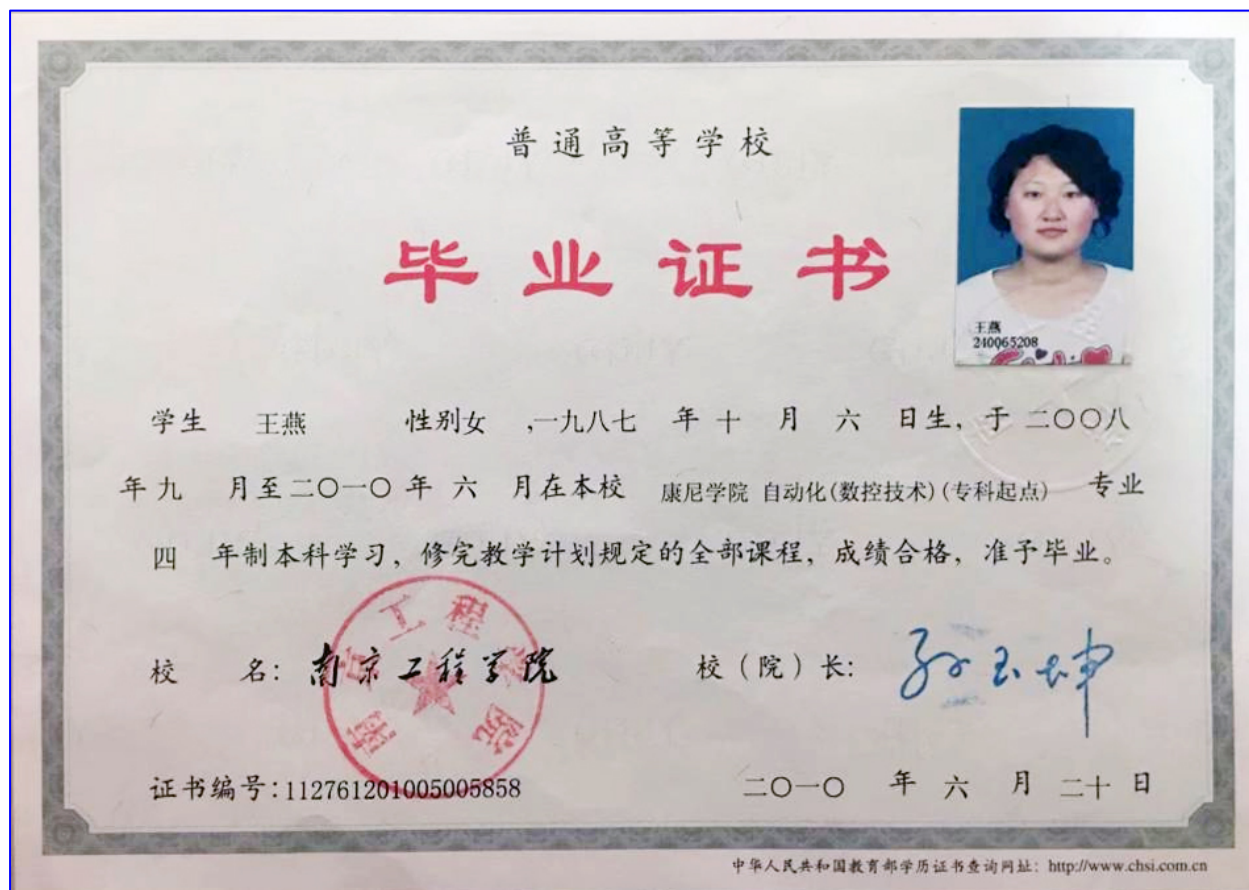 普通高等学校
毕业证书
王燕
240065208
学生 王燕 性别女 ,一九八七 年 十 月 六 日生, 于 二〇〇八
年 九 月至 二〇一〇 年 六 月在本校 康尼学院 自动化(数控技术)(专科起点) 专业
四 年制本科学习, 修完教学计划规定的全部课程, 成绩合格, 准予毕业。
南京工程学院
校 名: 南京工程学院 校(院)长: 孙玉坤
证书编号:112761201005005858 二〇一〇 年 六 月 二十 日
中华人民共和国教育部学历证书查询网址: http://www.chsi.com.cn